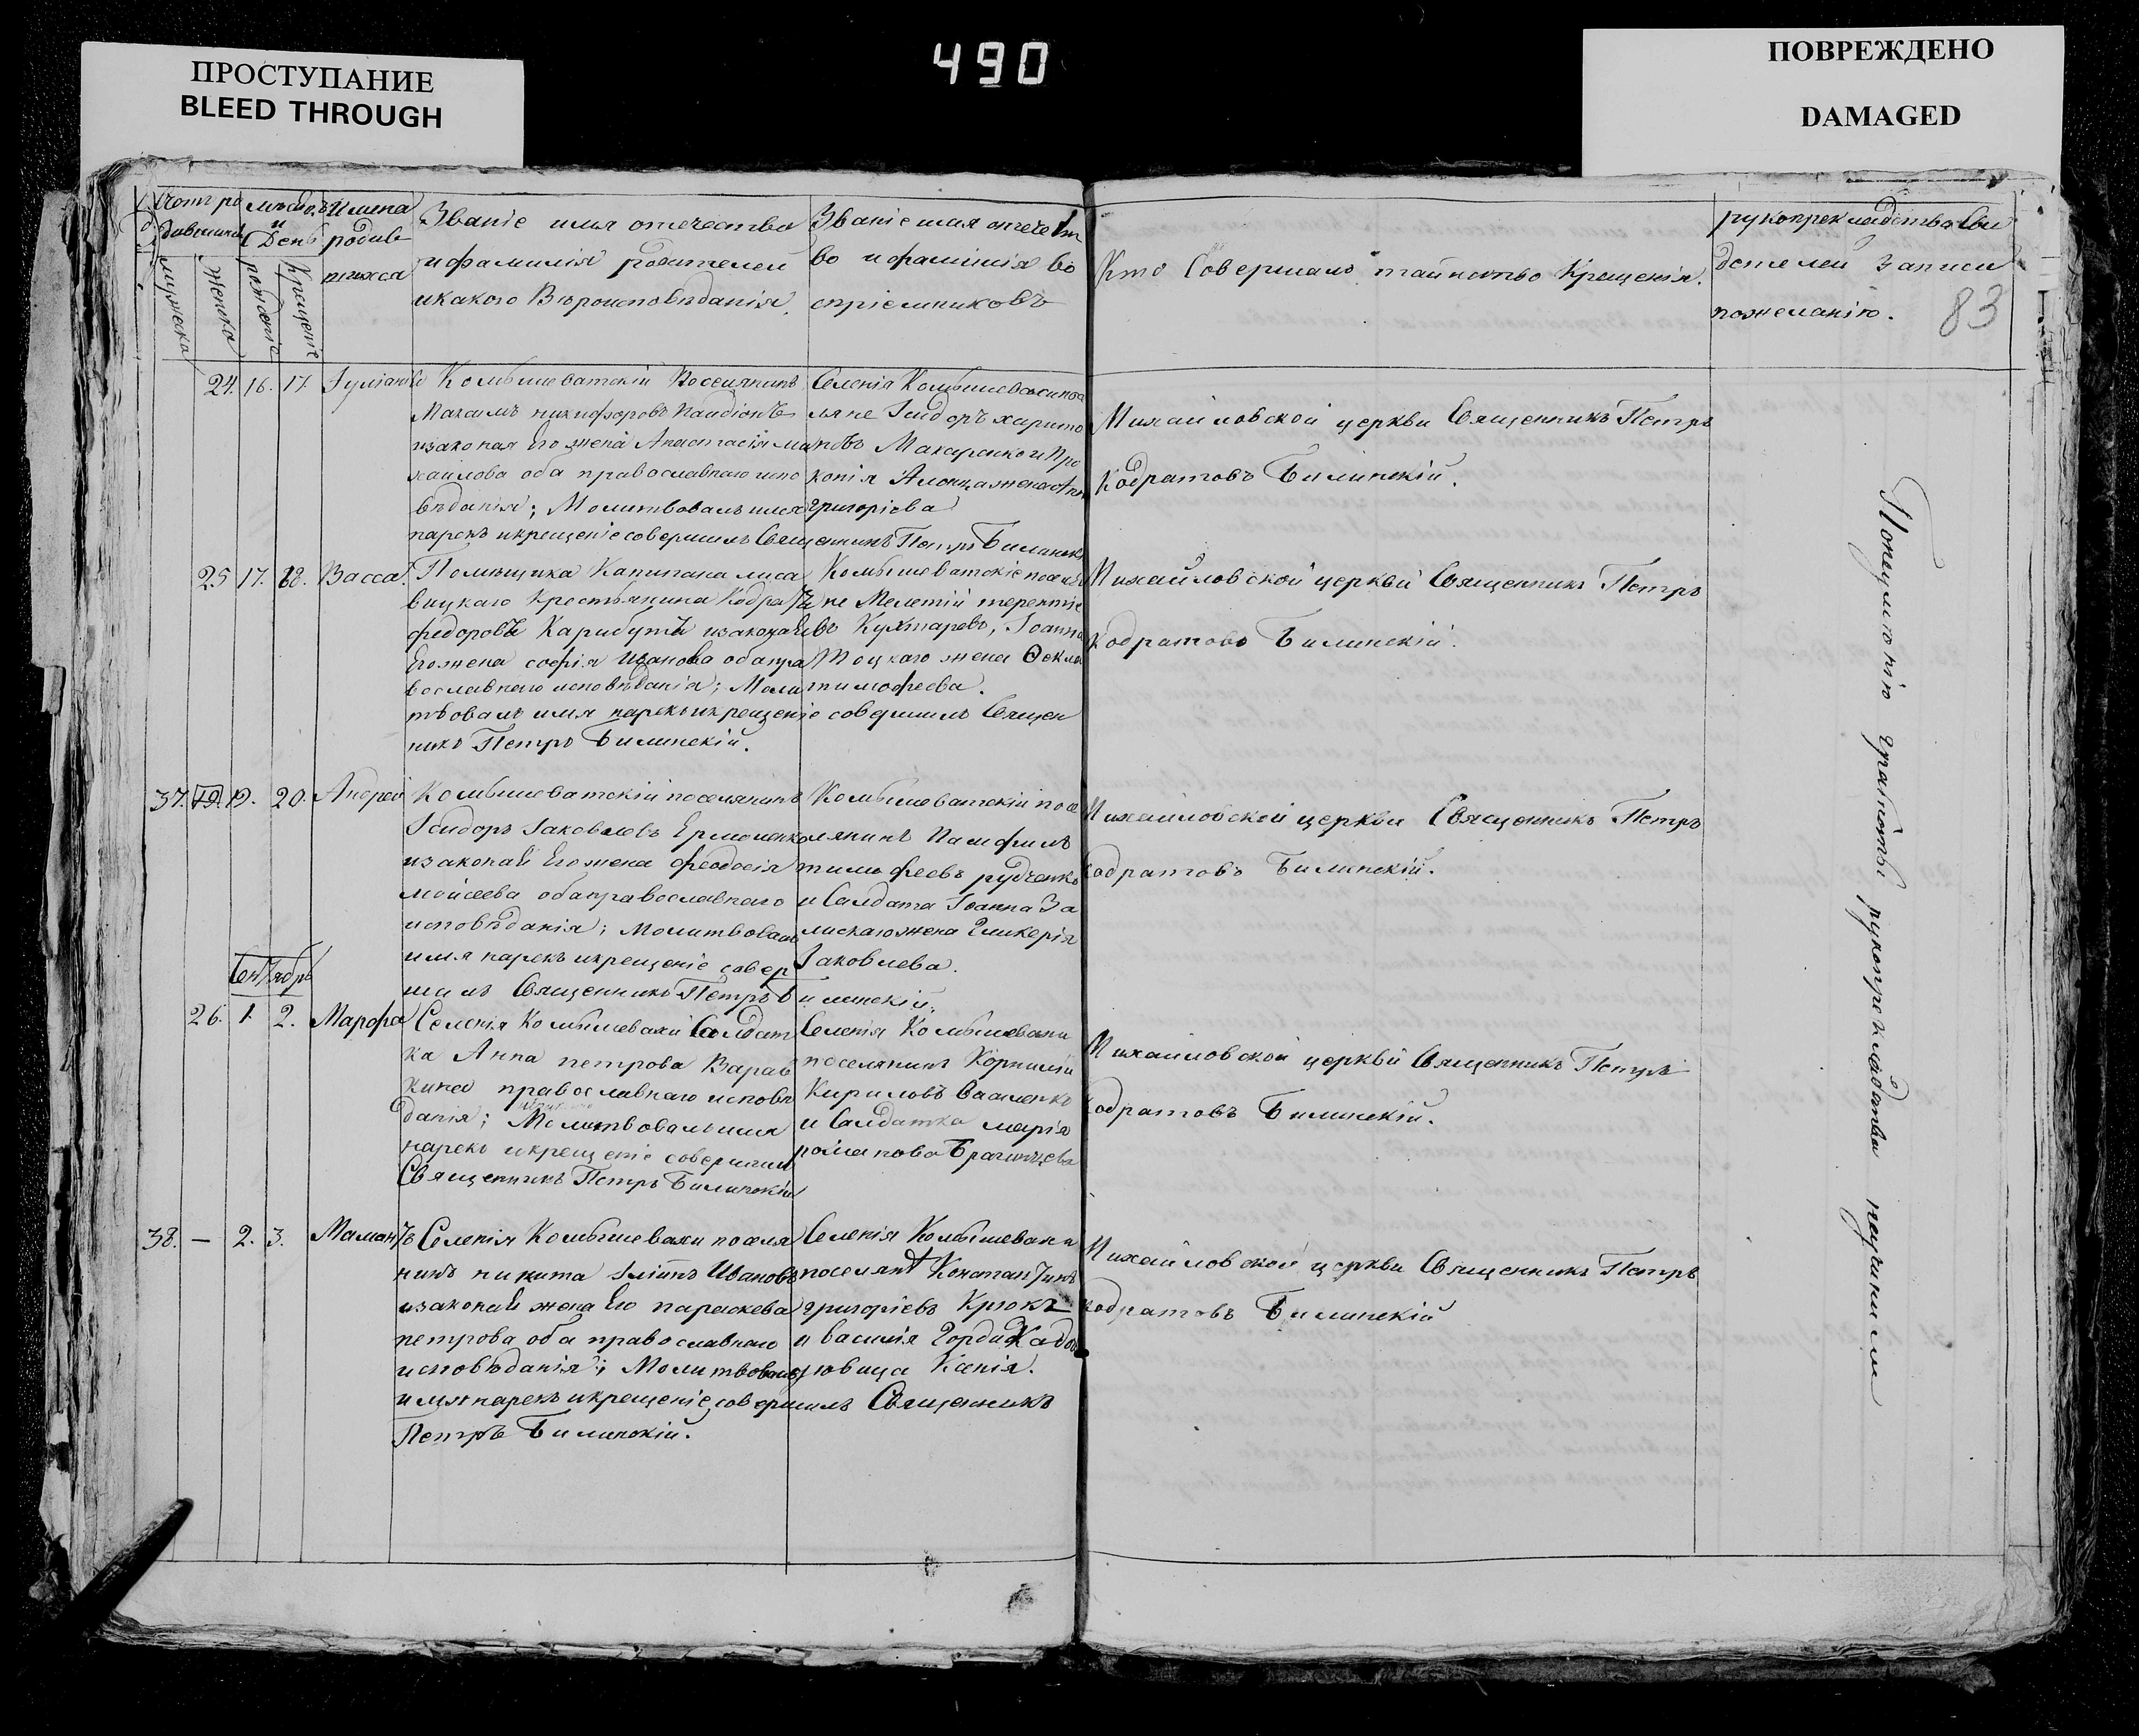 ПРОСТУПАНИЕ
BLEED THROUGH
490
ПОВРЕЖДЕНО
DAMAGED
Счотъ ро
дившихся
мужеска
женска
Мѣсяцъ
и
День
рожденіе
Крещеніе
Имена
родив
шихся
Званіе имя отечество
и фамилія родителей
и какого Вѣроисповѣданія.
Званіе имя отечест
во и фамилія во
спріемниковъ
Кто Совершалъ таинство Крещенія.
рукоприкладства Сви
детелей записи
пожеланію.
83
24. 16. 17.
Комышеватскій Поселянинъ
Максимъ никифоровъ
изаконая Его жена Анастасія ми
хайлова оба православнаго испо
вѣданія; Молитвовалъ имя
нарекъ и крещеніе совершилъ Священникъ Петръ Билинскій
Селенія Комышевахи посе
ляне Исидоръ харито
новъ Макаренко и Про
копія жена Анна
григоріева
Михайловской церкви Священникъ Петръ
Кодратовъ Билинскій.
25 17. 18. Васса.
Помѣщика Капитана
Крестьянина
федоровъ изаконая
Его жена софія Иванова оба пра
вославнаго исповѣданія; Моли
твовалъ имя нарекъ и крещеніе совершилъ Священ
никъ Петръ Билинскій.
Комышеватскіе посел
яне Мелетій терентіе
въ Кухтаревъ, Іоанна
жена Ѳекла
тимофеева.
Михайловской церкви Священникъ Петръ
Кодратовъ Билинскій.
37. 19. 19. 20. Андрей
Комышеватскій поселянинъ
Ісидоръ Іаковлевъ Ермоленко
изаконая Его жена феодосія
моисеева оба православнаго
исповѣданія; Молитвовалъ
имя нарекъ и крещеніе совер
шилъ Священникъ Петръ Билинскій.
Комышеватскій посе
лянинъ Памфилъ
тимофеевъ рудченко
и Салдата Іоанна За
жена Гликерія
Іаковлева.
Михайловской церкви Священникъ Петръ
Кодратовъ Билинскій.
Сентябрь
26. 1. 2. Марфа
Селенія Комышевахи Солдат
ка Анна петрова Варав
кина православнаго исповѣ
данія; Молитвовалъ имя
нарекъ и крещеніе совершилъ
Священникъ Петръ Билинскій
Селенія Комышевахи
поселянинъ Корнилій
Кириловъ Василенко
и Салдатка марія
романова
Михайловской церкви Священникъ Петръ
Кодратовъ Билинскій.
38. — 2. 3. Мамантъ
Селенія Комышевахи поселя
нинъ никита Ивановъ
изаконая жена Его параскева
петрова оба православнаго
исповѣданія; Молитвовалъ
имя нарекъ и крещеніе совершилъ Священникъ
Петръ Билинскій.
Селенія Комышевахи
поселянъ Константинъ
григоріевъ Крюкъ
и василія
Ксенія.
Михайловской церкви Священникъ Петръ
Кодратовъ Билинскій
Понеумѣнію грамоты рукоприкладства неучинили